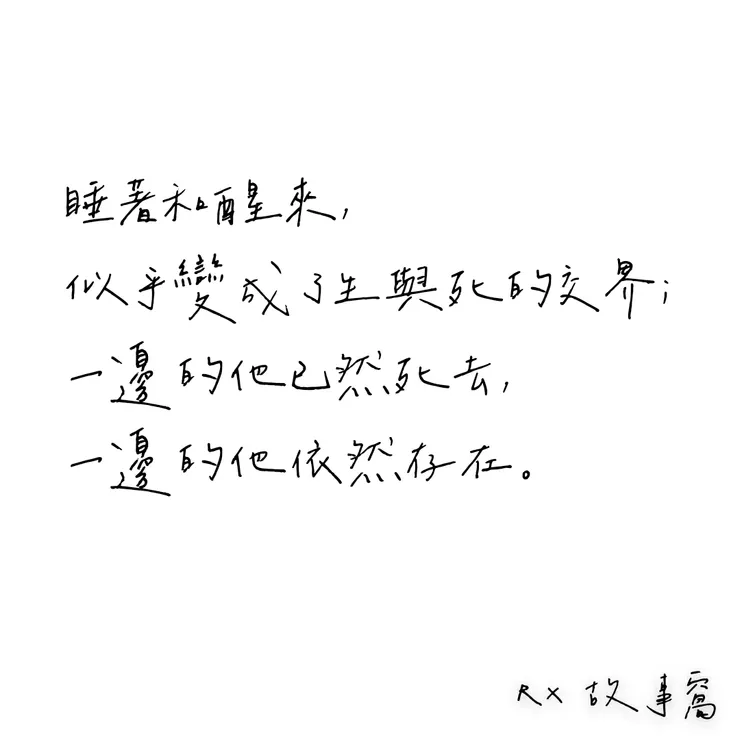 睡著和醒來,
似乎變成了生與死的交界;
一邊的他已然死去,
一邊的他依然存在。
RX 故事窩